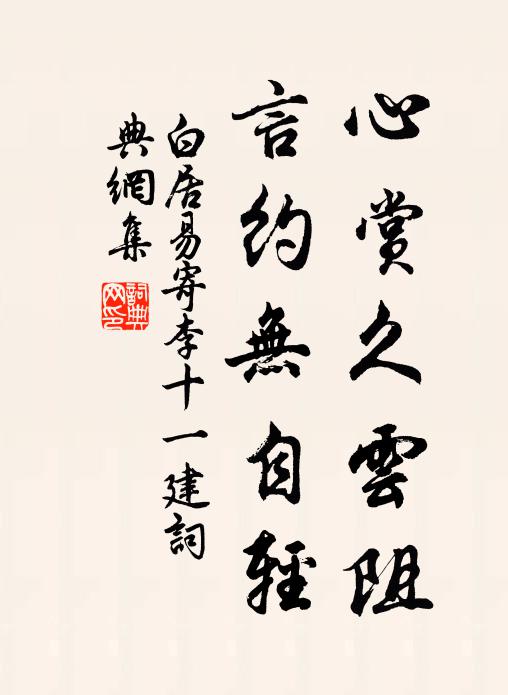 心賞久雲阻
言約無自輕
白居易寄李十一建詞
典網集
詞典
网印